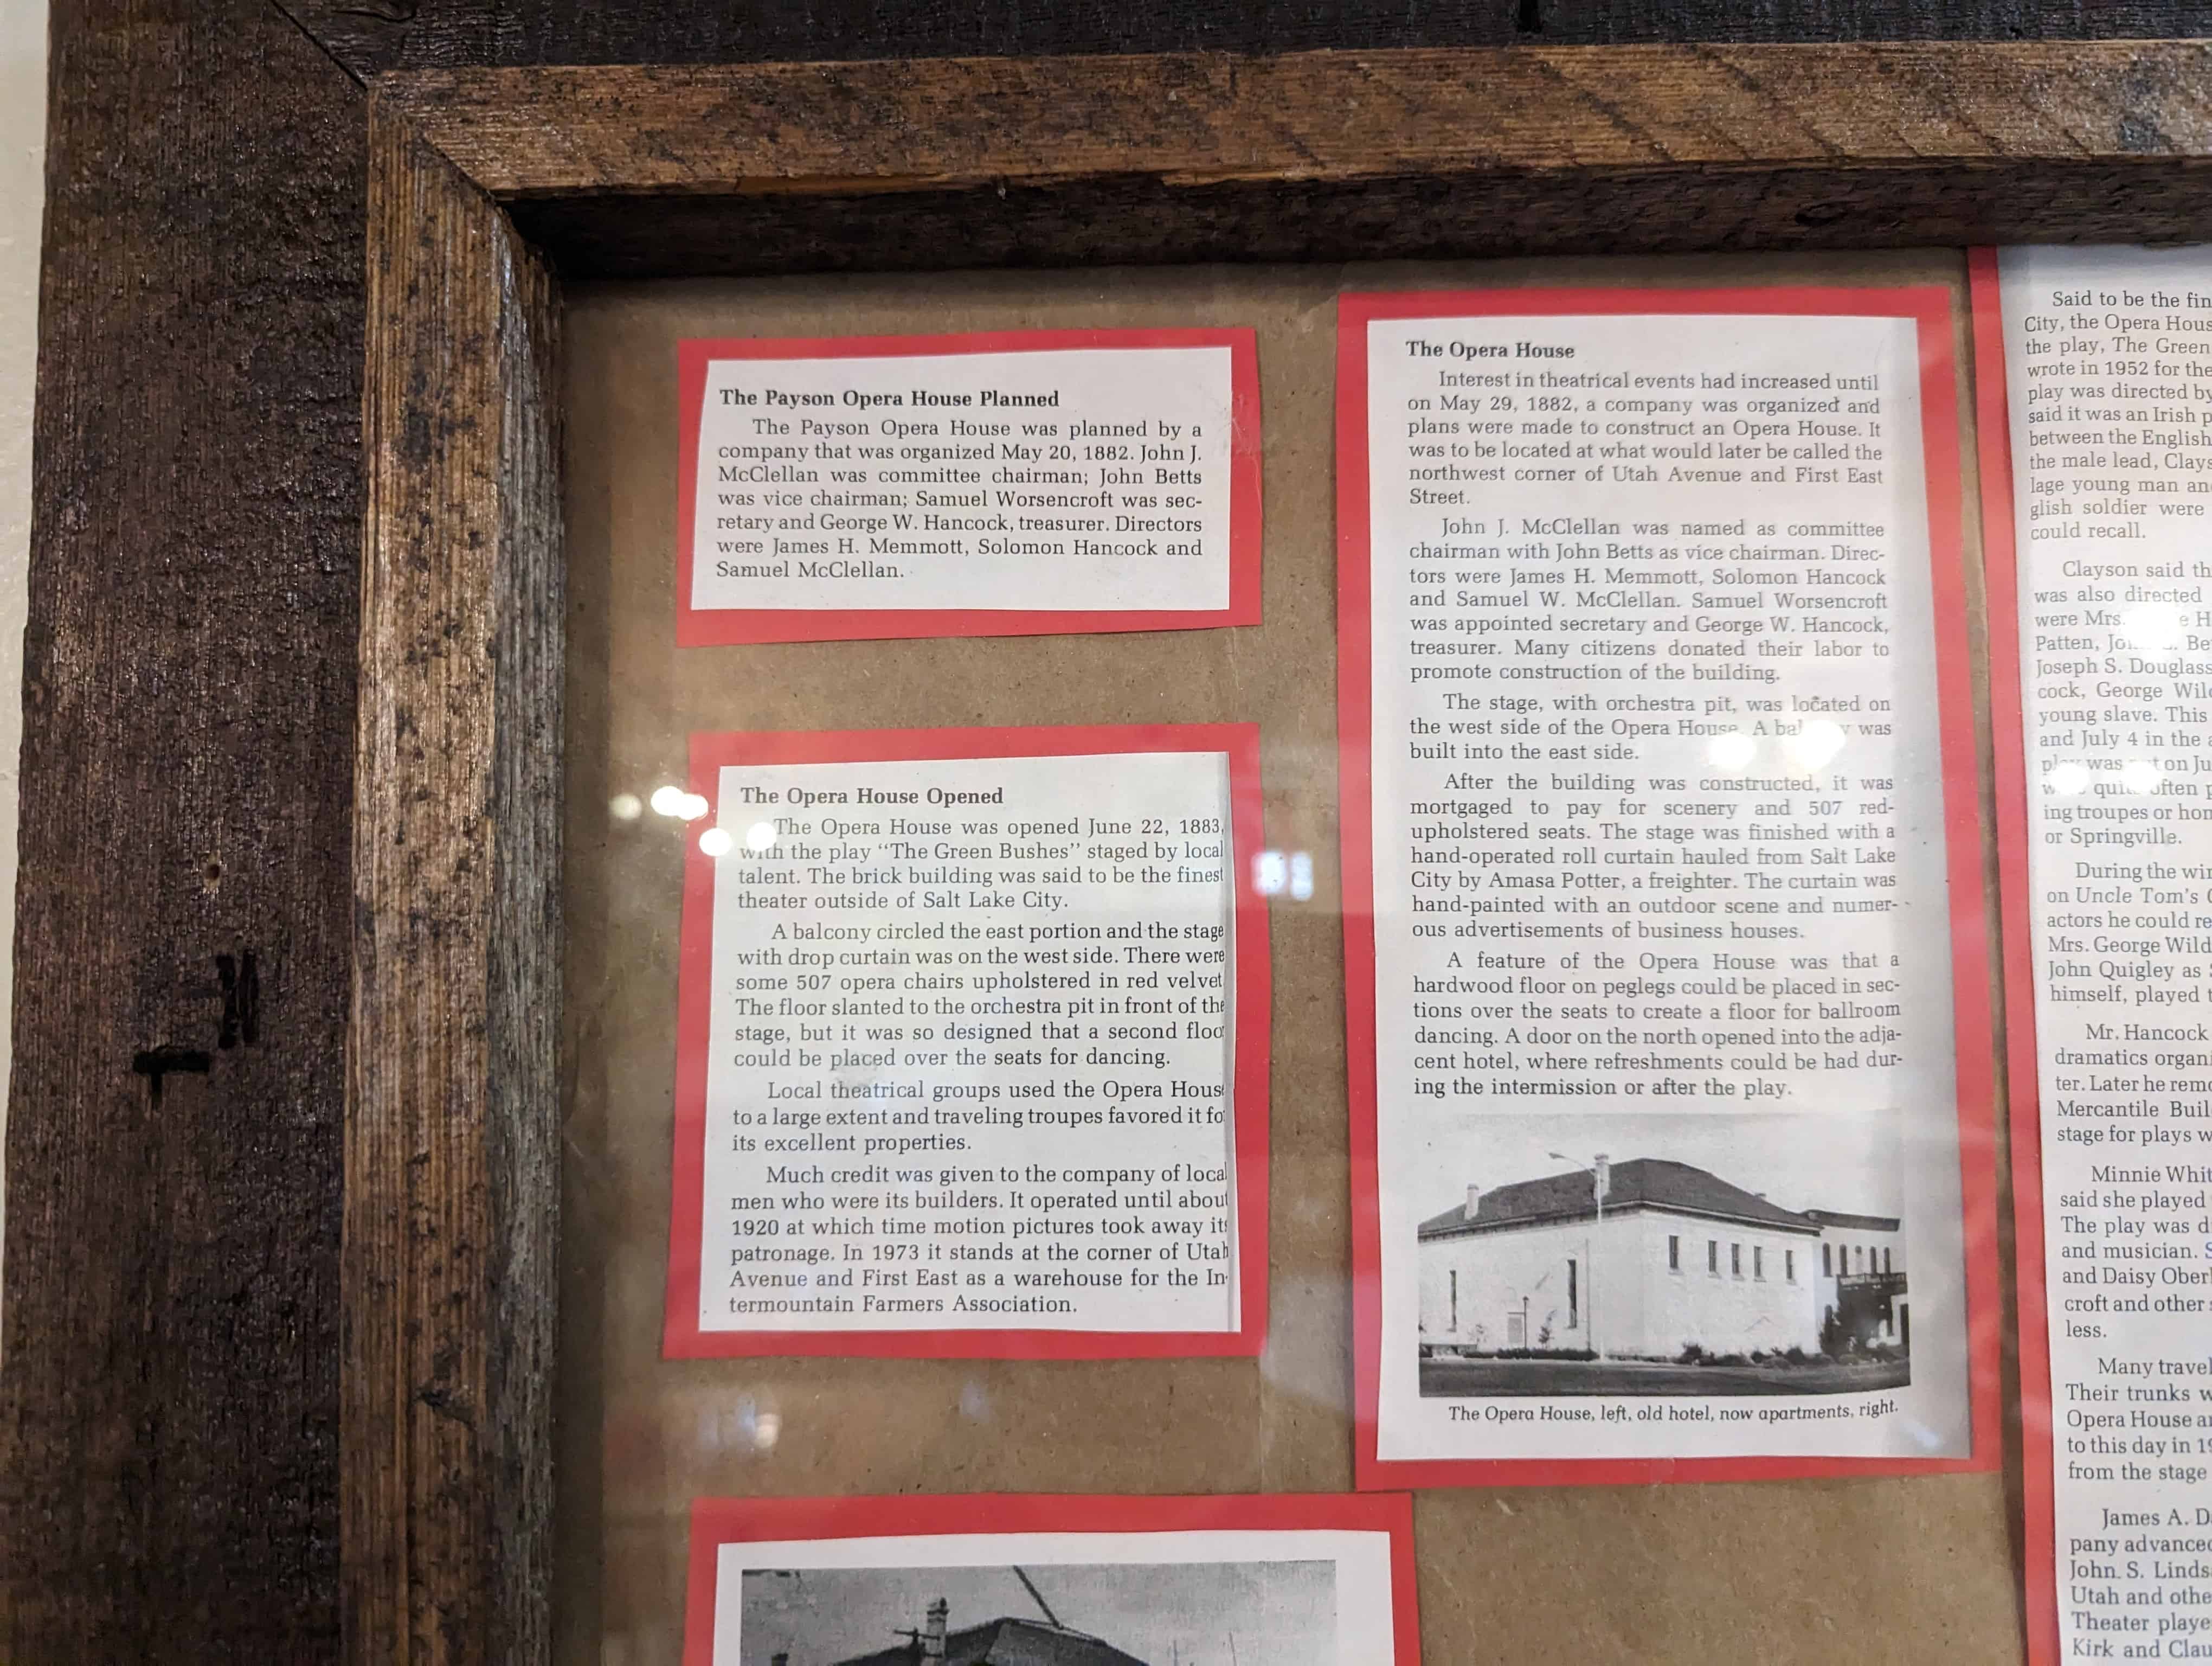 The Payson Opera House Planned
The Payson Opera House was planned by a
company that was organized May 20, 1882. John J.
McClellan was committee chairman; John Betts
was vice chairman; Samuel Worsencroft was sec-
retary and George W. Hancock, treasurer. Directors
were James H. Memmott, Solomon Hancock and
Samuel McClellan.
The Opera House Opened
The Opera House was opened June 22, 1883,
with the play “The Green Bushes” staged by local
talent. The brick building was said to be the finest
theater outside of Salt Lake City.
A balcony circled the east portion and the stage
with drop curtain was on the west side. There were
some 507 opera chairs upholstered in red velvet
The floor slanted to the orchestra pit in front of the
stage, but it was so designed that a second floo
could be placed over the seats for dancing.
Local theatrical groups used the Opera Hous
to a large extent and traveling troupes favored it fo
its excellent properties.
Much credit was given to the company of local
men who were its builders. It operated until about
1920 at which time motion pictures took away its
patronage. In 1973 it stands at the corner of Utah
Avenue and First East as a warehouse for the In-
termountain Farmers Association.
The Opera House
Interest in theatrical events had increased until
on May 29, 1882, a company was organized and
plans were made to construct an Opera House. It
was to be located at what would later be called the
northwest corner of Utah Avenue and First East
Street.
John J. McClellan was named as committee
chairman with John Betts as vice chairman. Direc-
tors were James H. Memmott, Solomon Hancock
and Samuel W. McClellan. Samuel Worsencroft
was appointed secretary and George W. Hancock,
treasurer. Many citizens donated their labor to
promote construction of the building.
The stage, with orchestra pit, was located on
the west side of the Opera House. A was
built into the east side.
After the building was constructed, it was
mortgaged to pay for scenery and 507 red-
upholstered seats. The stage was finished with a
hand-operated roll curtain hauled from Salt Lake
City by Amasa Potter, a freighter. The curtain was
hand-painted with an outdoor scene and numer-
ous advertisements of business houses.
A feature of the Opera House was that a
hardwood floor on peglegs could be placed in sec-
tions over the seats to create a floor for ballroom
dancing. A door on the north opened into the adja-
cent hotel, where refreshments could be had dur-
ing the intermission or after the play.
The Opera House, left, old hotel, now apartments, right.
Said to be the fin
City, the Opera Hous
the play, The Green
wrote in 1952 for the
play was directed by
said it was an Irish p
between the English
the male lead, Clays
lage young man an
glish soldier were
could recall.
Clayson said th
was also directed
were Mrs. H
Patten, Be
Joseph S. Douglass
cock, George Wil
young slave. This
and July 4 in the a
was on Ju
often p
ing troupes or hom
or Springville.
During the win
on Uncle Tom's C
actors he could re
Mrs. George Wild
John Quigley as
himself, played t
Mr. Hancock
dramatics organi
ter. Later he remo
Mercantile Buil
stage for plays w
Minnie Whit
said she played
The play was d
and musician. S
and Daisy Ober
croft and other
less.
Many travel
Their trunks w
Opera House a
to this day in 19
from the stage
James A. D
pany advanced
John S. Linds
Utah and othe
Theater playe
Kirk and Clau